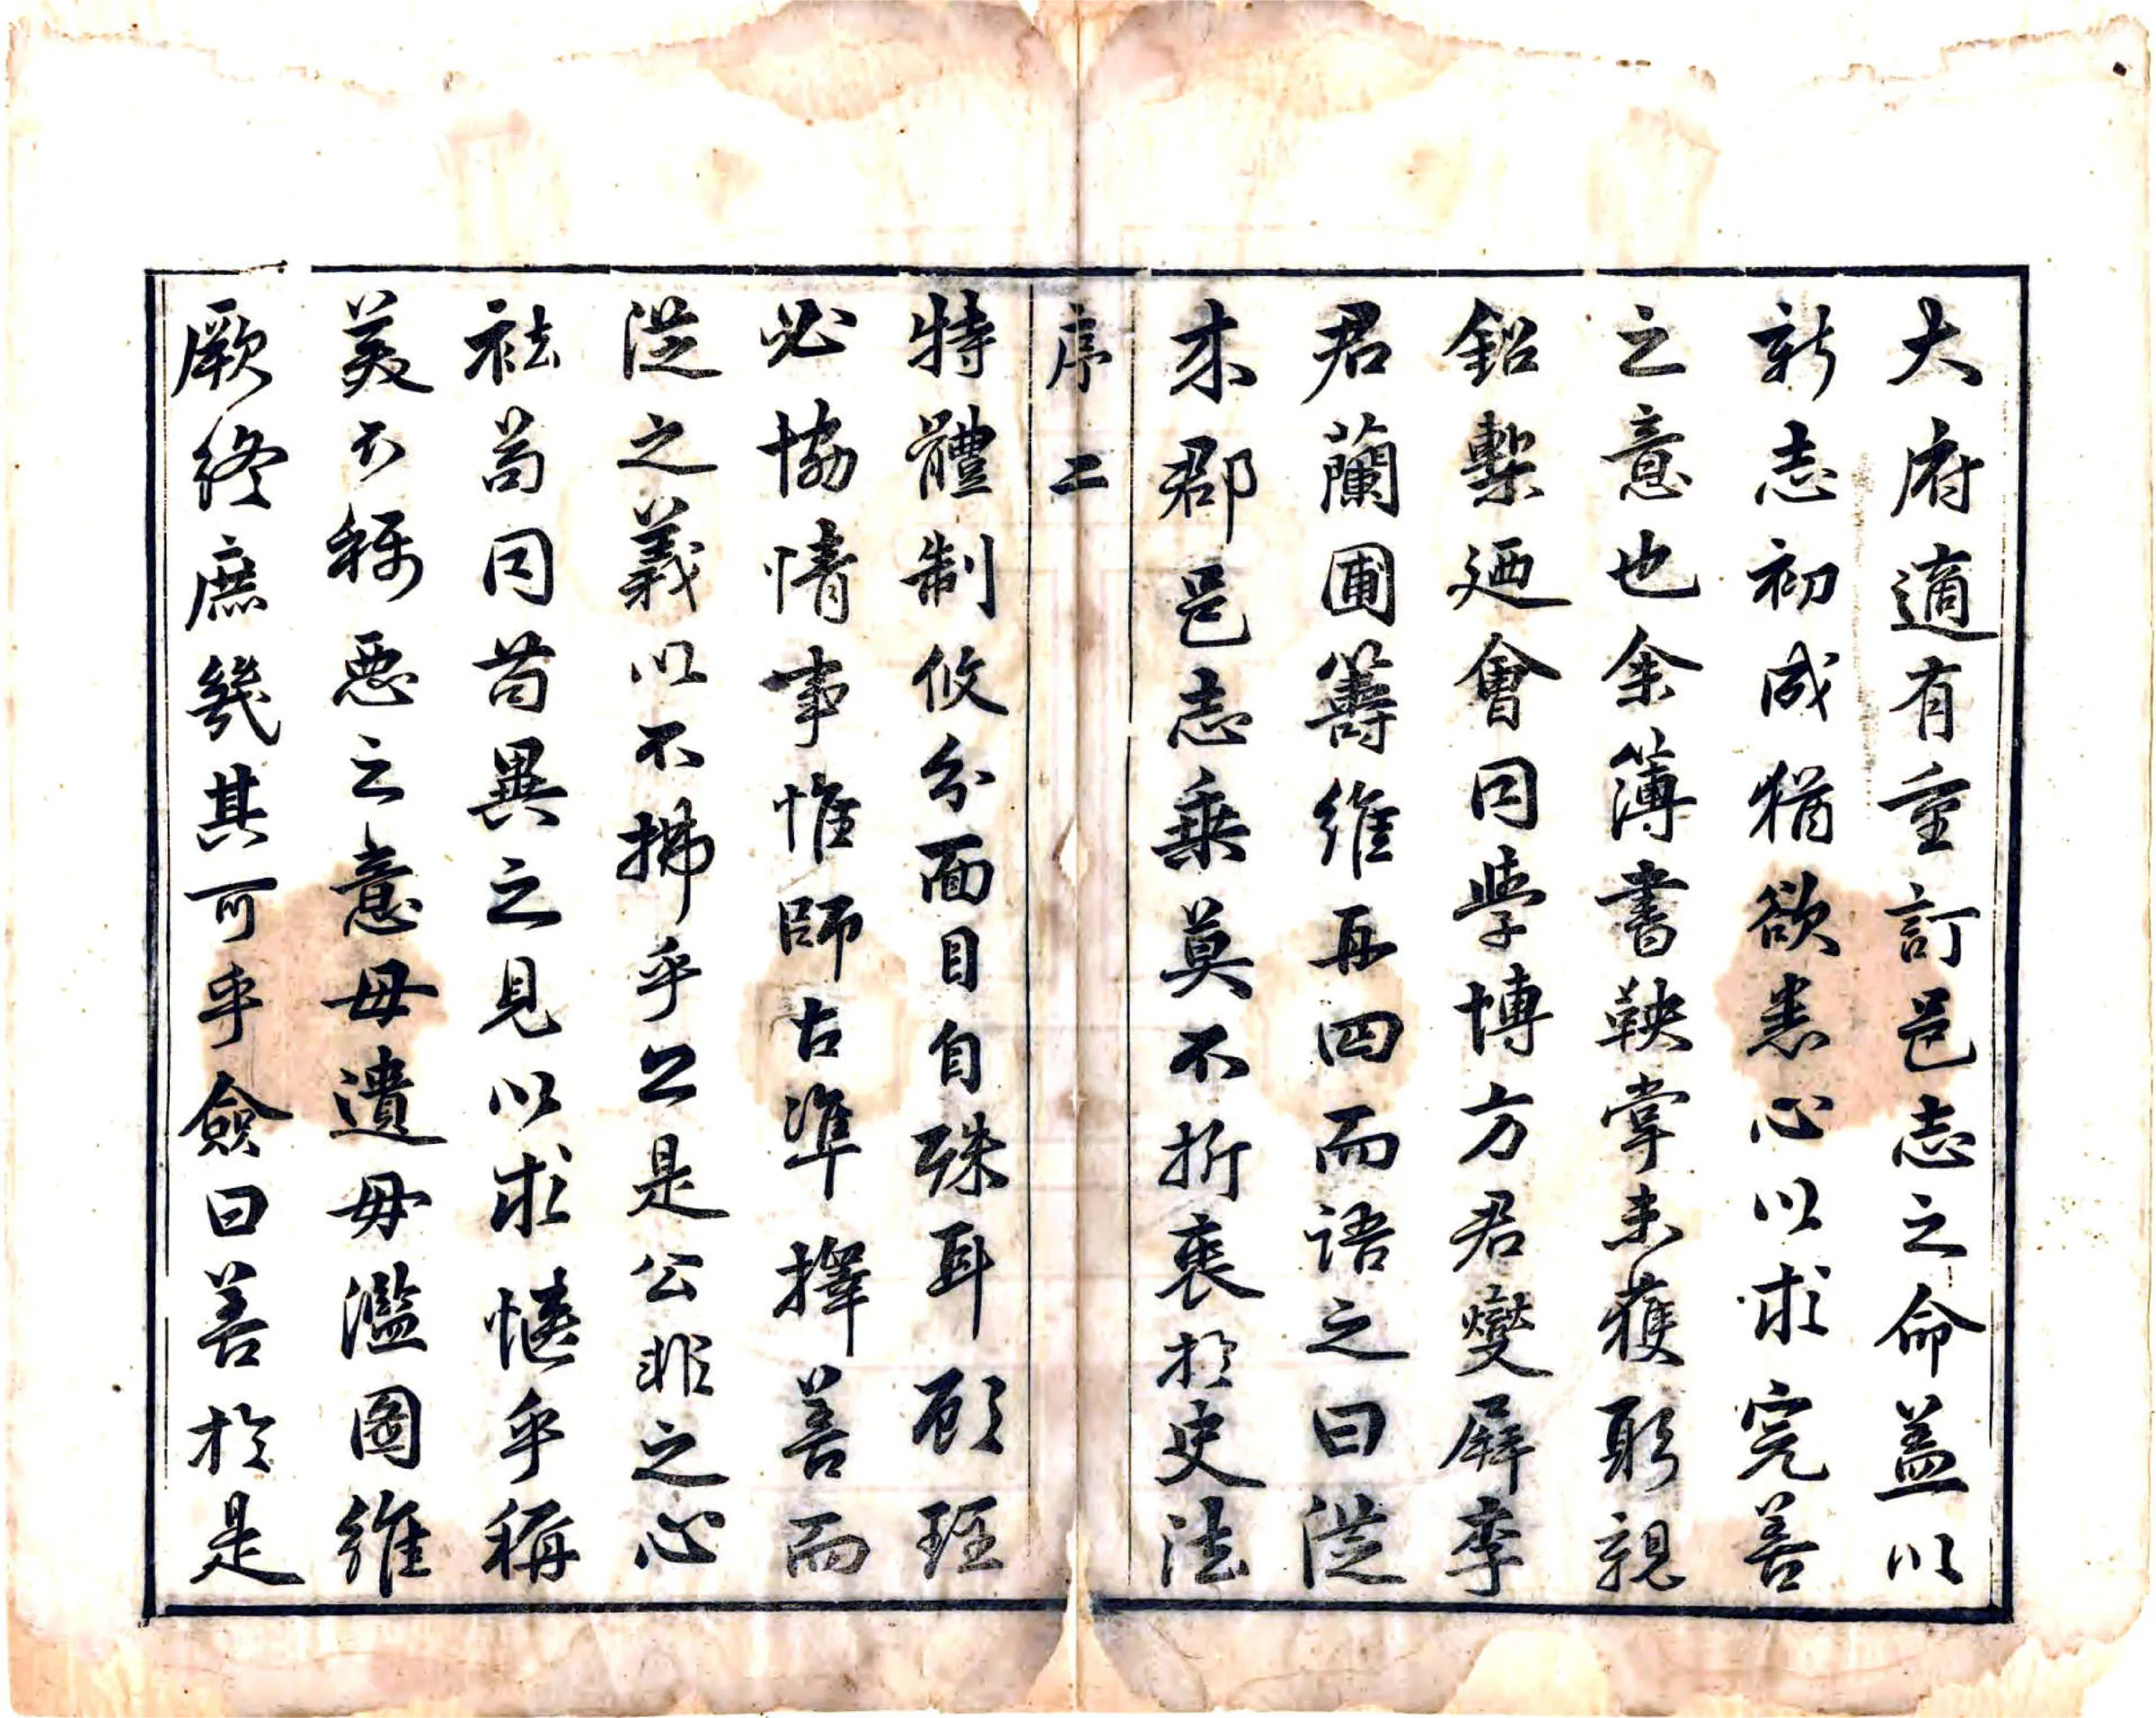 大府適有重訂邑志之命蓋以
新志初成猶欲悉心以求完善
之意也余簿書鞅掌未獲躬親
鉛槧迺會同學博方君燮屏李
君蘭圃籌維再四而語之曰從
來郡邑志乗莫不折衷於史法
序二
特體制攸分面目自殊耳顧理
必協情事惟師古準擇善而
從之義以不拂乎公是公非之心
祛苟同苟異之見以求愜乎稱
美不稱惡之意毋遺毋濫圖維
厥終庶幾其可乎僉曰善於是